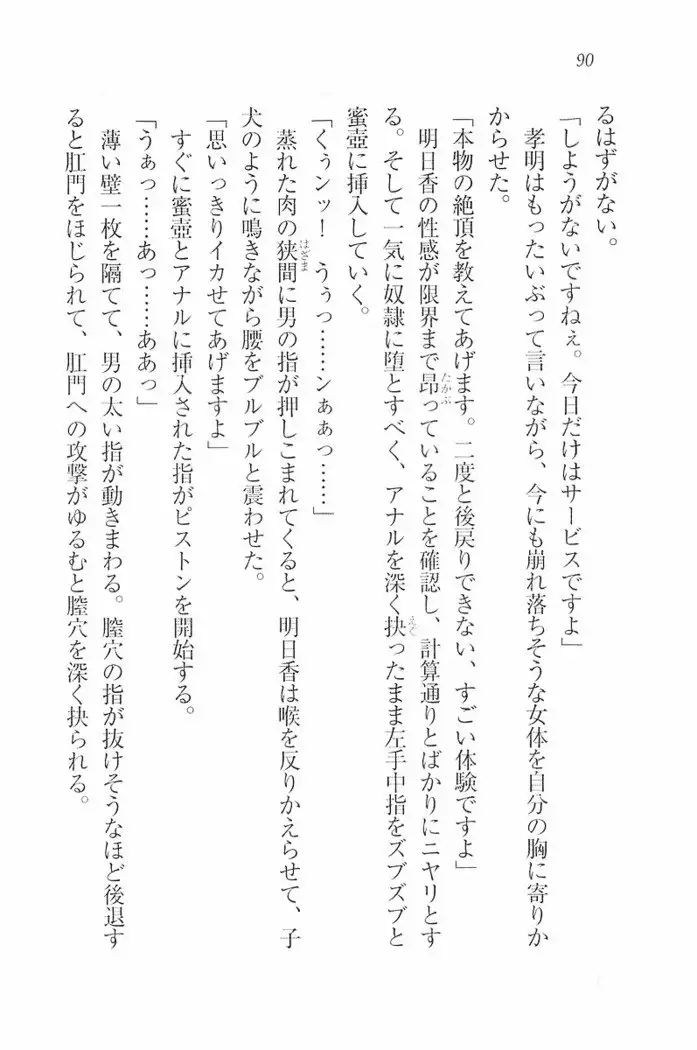 90
るはずがない。
「しようがないですねぇ。今日だけはサービスですよ」
孝明はもったいぶって言いながら、今にも崩れ落ちそうな女体を自分の胸に寄りか
からせた。
「本物の絶頂を教えてあげます。二度と後戻りできない、すごい体験ですよ」
明日香の性感が限界まで昂っていることを確認し、計算通りとばかりにニヤリとす
る。そして一気に奴隷に堕とすべく、アナルを深く抉ったまま左手中指をズブズブと
蜜壺に挿入していく。
「くぅンッ！　うぅっ……ンぁぁっ……」
蒸れた肉の狭間に男の指が押しこまれてくると、明日香は喉を反りかえらせて、子
犬のように鳴きながら腰をブルブルと震わせた。
「思いっきりイカせてあげますよ」
すぐに蜜壺とアナルに挿入された指がピストンを開始する。
「うぁっ……あっ……ああっ」
薄い壁一枚を隔てて、男の太い指が動きまわる。膣穴の指が抜けそうなほど後退す
ると肛門をほじられて、肛門への攻撃がゆるむと膣穴を深く抉られる。